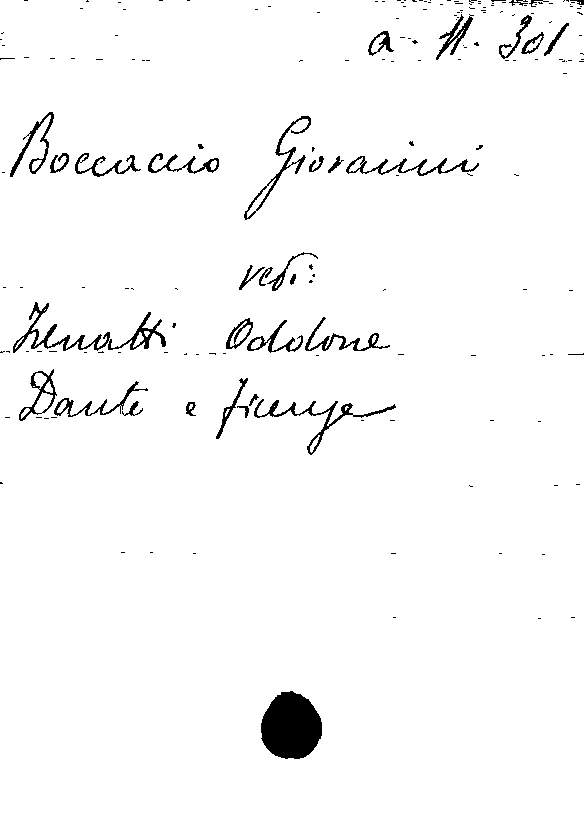 a. 11. 301
Boccaccio Giovanni
vedi:
Zenatti Oddone
Dante e Firenze